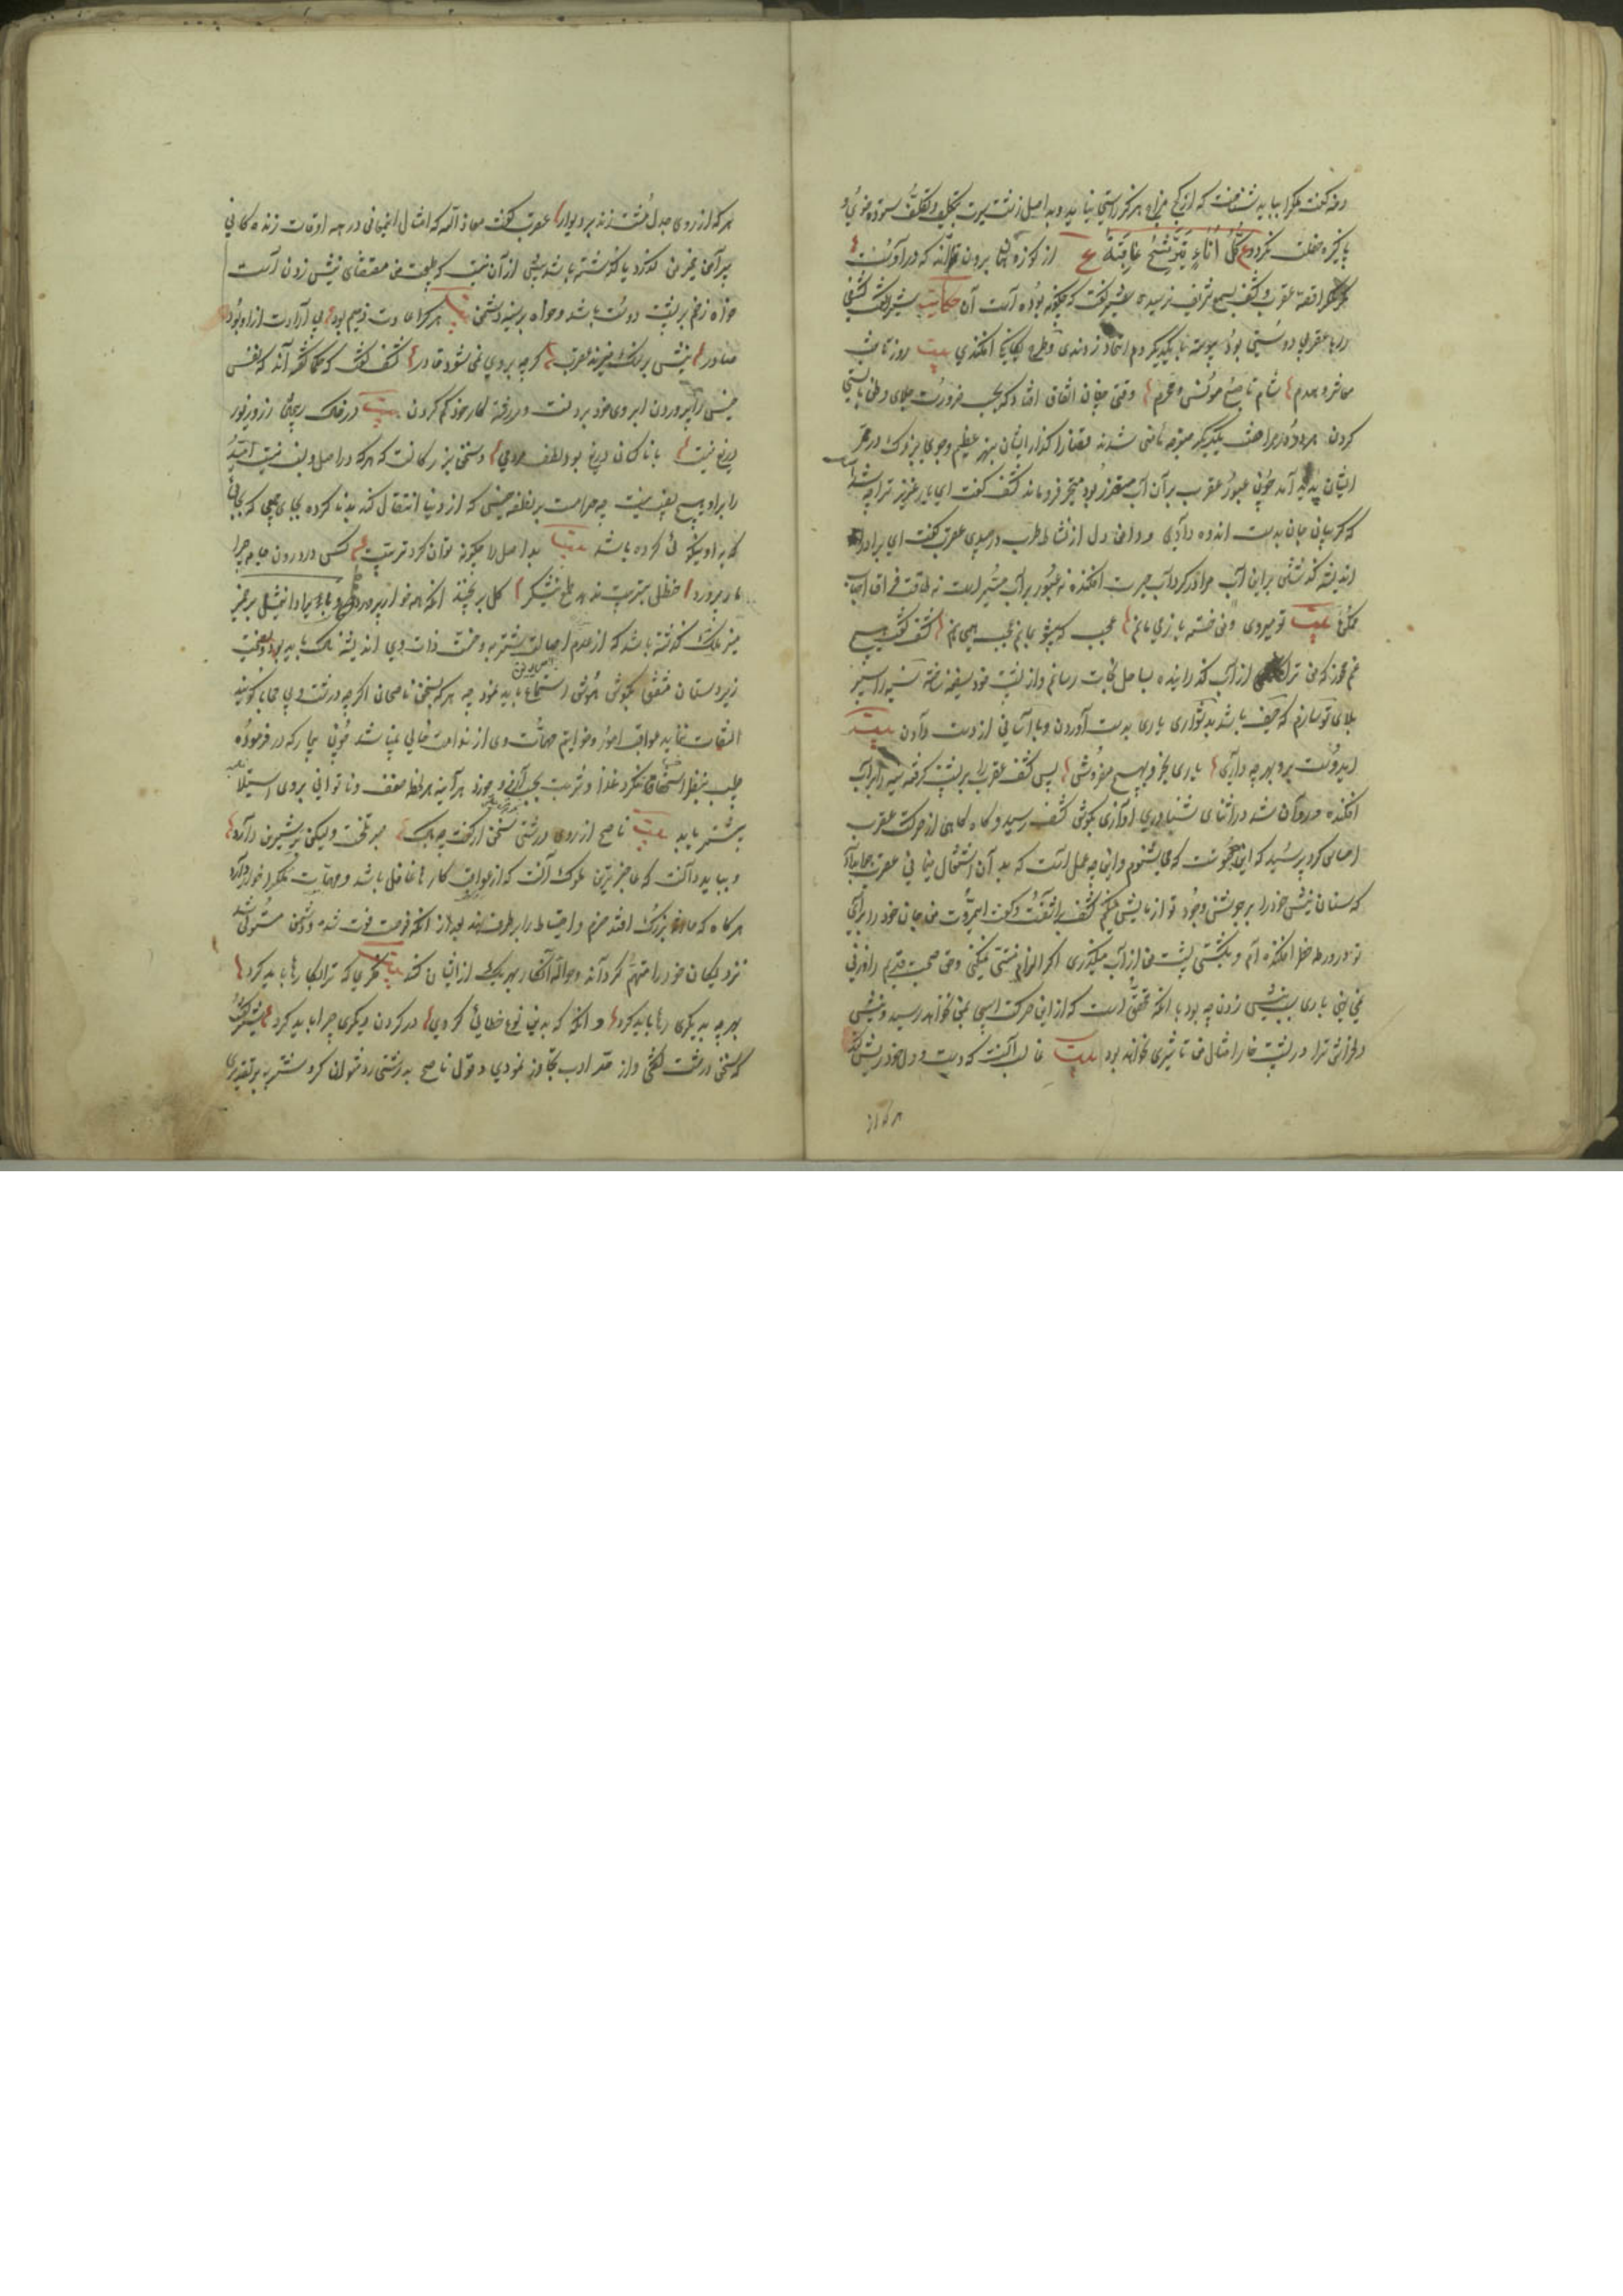 دمنه گفت ملک را بباید شناخت که از کج مزاج هرگز راستی نیاید و بد اصل زشت سیرت بتکلیف و تکلف ستوده خوی و
پاکیزه خصلت نگردد ع کل اناء یترشح بما فیه ع از کوزه همان برون تراود که دروست
مگر ملک را قصه عقرب و کشف بسمع شریف نرسیده شیر گفت که چگونه بوده است آن حکایت گفت کشفی
را با عقربی دوستی بود پیوسته با یکدیگر دم اتحاد زدندی و طرح یگانگی افکندی بیت روز تا شب
معاشر و همدم شام تا صبح مونس و محرم وقتی چنان اتفاق افتاد که بحسب ضرورت جلای وطن بایستی
کردن هر دو بمرافقت یکدیگر متوجه مأمنی شدند قضا را گذر ایشان بنهر عظیم و جوی بزرگ در ممر
ایشان پدید آمد چون عبور عقرب بر آن آب متعذر بود متحیر فرو ماند کشف گفت ای یار عزیز ترا چه شد
که گریبان جان بدست اندوه دادی و دامن دل از نشاط و طرب درچیدی عقرب گفت ای برادر
اندیشه گذشتن بر این آب مرا در گرداب حیرت افکنده نه عبور بر آب میسر است نه طاقت فراق احباب
ممکن بیت تو میروی و من خسته باز می مانم عجب که بیتو بمانم عجب همی مانم کشف گفت هیچ
غم مخور که من ترا از آب گذرانیده بساحل نجات رسانم و از پشت خود سفینه ساخته سینه را سپر
بلای تو سازم که حیف باشد بدشواری یاری بدست آوردن و بآسانی از دست دادن بیت
ای دوست برو بهرچه داری یاری بخر و بهیچ مفروش پس کشف عقرب را بر پشت گرفته سینه بر آب
افکنده و روان شد در اثنای شناوری آوازی بگوش کشف رسید و کاوکاوی از حرکت عقرب
احساس کرد پرسید که این چه صوتست که می شنوم و این چه عمل است که بدان اشتغال مینمائی عقرب جواب داد
که سنان نیش خود را بر جوشن وجود تو آزمایش میکنم کشف برآشفت و گفت ای بیمروت من جان خود را برای
تو در ورطه خطر افکنده ام و بکشتی پشت من از آب میگذری اگر التزام منتی نمیکنی و حق صحبت قدیم را وزنی
نمی نهی باری سبب نیش زدن چه بود با آنکه محقق است که از این حرکت آسیبی بمن نخواهد رسید و نیش
دلخراش ترا در پشت خارا مثال من تأثیری نخواهد بود بیت غالبا آنست که دست و دل خود ریش کند
هر که از
هر که از روی جدل مشت زند بر دیوار عقرب گفت معاذ الله که امثال این معانی در همه اوقات زندگانی
پیرامن ضمیر من گردد یا گذشته باشد بیش از آن نیست که طبیعت من مقتضای نیش زدن است
خواه زخم بر پشت دوست باشد و خواه بر سینه دشمن بیت هر کرا عادت ذمیم بود بی ارادت ازو بود
صادر نیش بر سنگ میزند عقرب گرچه بر وی نمیشود قادر کشف گفت که حکما گفته اند که نفس
خسیس را پروردن آبروی خود بردنست و سررشته کار خود گم کردن بیت در خاک ریختن زر و زیور
دریغ نیست با ناکسان دریغ بود لطف و مردمی و سخن بزرگانست که هرکه در اصل او نسبت نیست امید
را برو هیچ یقین نیست چه حرامست بر نطفه خسیس که از دنیا انتقال کند بدنا کرده بجای کسی که بجای
که با او نیکوئی کرده باشد بیت بد اصل را چگونه توان کرد تربیت کس در درون جامه چرا
مار پرورد حنظل بتربیت ندهد طعم نیشکر گل بر نچیند آنکه همه خار پرورد و این مثل بر ضمیر
منیر ملک گذشته باشد که از عدم اصالت شتربه و خست ذات وی اندیشه ناک باید بود و نصیحت
زیردستان مشفق بگوش هوش استماع باید نمود چه هرکه بسخن ناصحان اگرچه درشت و بی محابا گویند
التفات ننماید عواقب امور و خواتیم مهمات وی از ندامت خالی نباشد چون بیمار که در فرموده
طبیب بنظر استخفاف نگرد و غذا و شربت بحسب آرزو خورد هر آینه هر لحظه ضعف و ناتوانی بر وی استیلا
بیشتر یابد بیت ناصح از روی درشتی سخن ار گفت چه باک صبر تلخست ولیکن بر شیرین دارد
و بباید دانست که عاجزترین ملوک آنست که از عواقب کارها غافل باشد و مهمات ملک خوار دارد
هرگاه که حادثه بزرگ افتد حزم و احتیاط را بر طرف نهد بعد از آنکه فرصت فوت شد و دشمن مستولی شد
نزدیکان خود را متهم گرداند و حواله آنکار بهر یک از ایشان کند بیت فکری که ترا بکارها باید کرد
بهرچه بدیگری رها باید کرد و آنگه که بدین نوع خطائی کردی در گردن دیگری چرا باید کرد شیر گفت
که سخن درشت گفتی و از حد ادب تجاوز نمودی و قول ناصح بدرشتی رد نتوان کرد و شتربه بر تقدیری